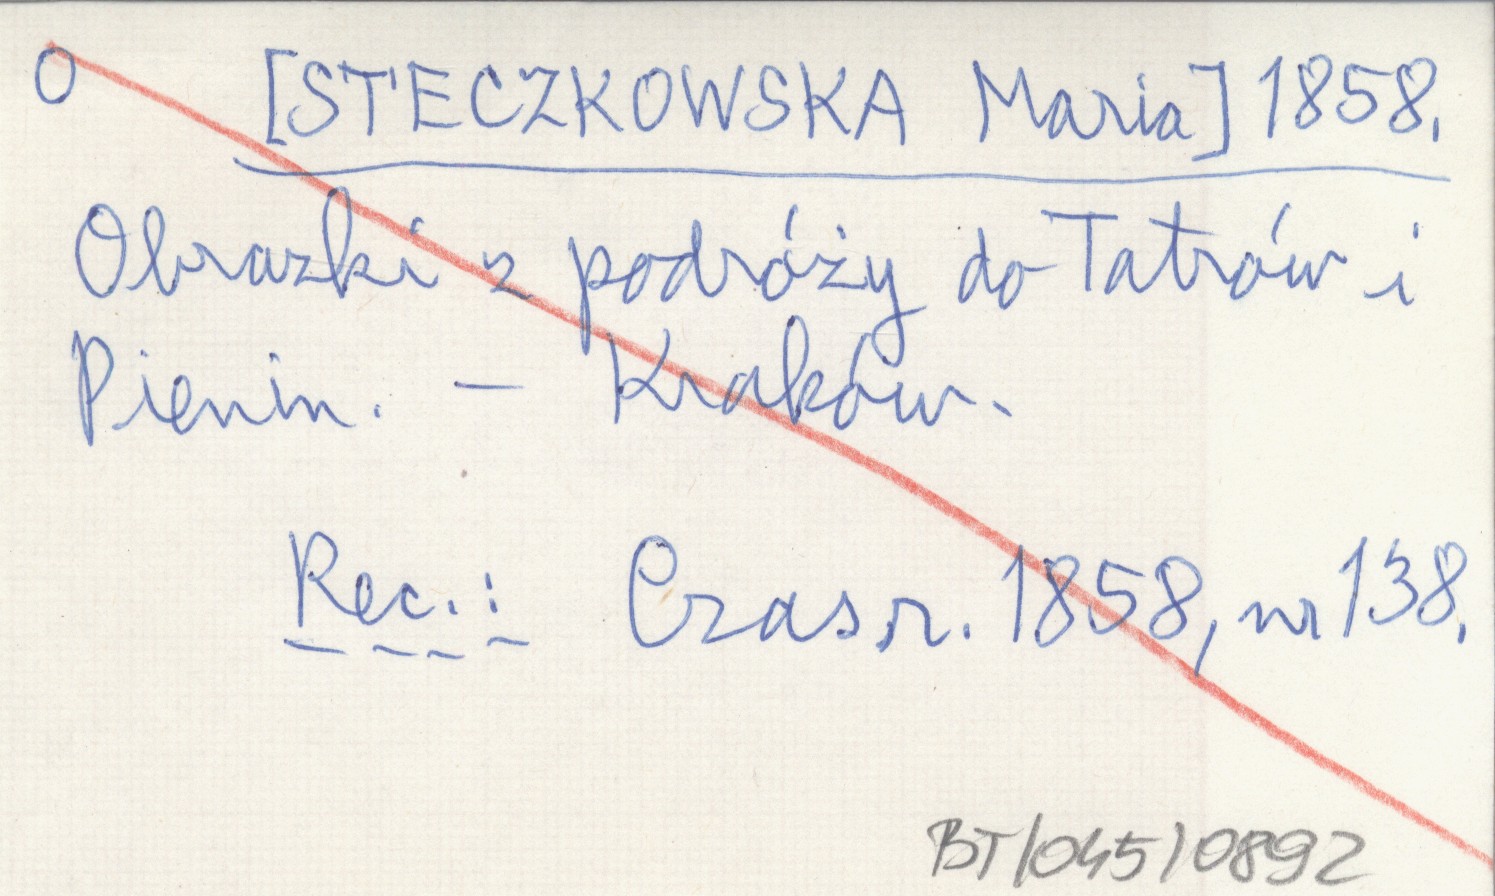 O [STECZKOWSKA Maria] 1858.
Obrazki z podróży do Tatrów i
Pienin. — Kraków.
Rec.: Czas r. 1858, nr 138.
BT/045/0892